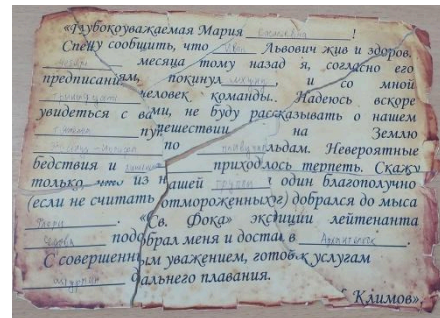 «Глубокоуважаемая Мария Васильевна !
Спешу сообщить, что Иван Львович жив и здоров.
месяца тому назад я, согласно его
предписаниям, покинул шхуну, и со мной
человек команды. Надеюсь вскоре
увидеться с вами, не буду рассказывать о нашем
путешествии на Землю
по плавучим льдам. Невероятные
бедствия и приходлось терпеть. Скажу
только что из нашей группы я один благополучно
(если не считать отмороженных ног) добрался до мыса
. «Св. Фока» экспедиции лейтенанта
подобрал меня и доставил в Архангельск.
С совершенным уважением, готовый к услугам
штурман дальнего плавания.
Климов»,